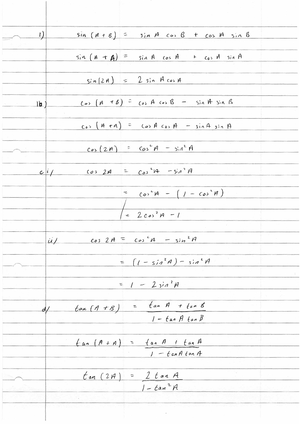 1) sin (A + B) = sin A cos B + cos A sin B
sin (A + A) = sin A cos A + cos A sin A
sin (2A) = 2 sin A cos A
1b) cos (A + B) = cos A cos B − sin A sin B
cos (A + A) = cos A cos A − sin A sin A
cos (2A) = cos² A − sin² A
c i) cos 2A = cos² A − sin² A
= cos² A − (1 − cos² A)
= 2 cos² A − 1
ii) cos 2A = cos² A − sin² A
= (1 − sin² A) − sin² A
= 1 − 2 sin² A
d) tan (A + B) = tan A + tan B
1 − tan A tan B
tan (A + A) = tan A + tan A
1 − tan A tan A
tan (2A) = 2 tan A
1 − tan² A